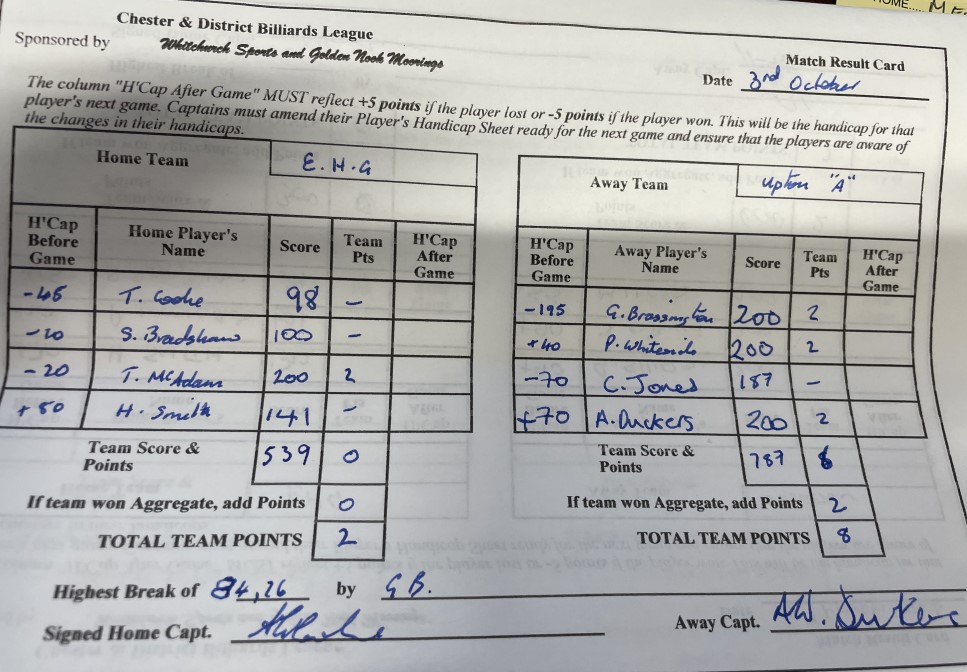 HOME.... ME
Chester & District Billiards League
Sponsored by Whitchurch Sports and Golden Nook Moorings
Match Result Card
Date 3rd October
The column "H'Cap After Game" MUST reflect +5 points if the player lost or -5 points if the player won. This will be the handicap for that
player's next game. Captains must amend their Player's Handicap Sheet ready for the next game and ensure that the players are aware of
the changes in their handicaps.
Home Team E.H.G
H'Cap Before Game Home Player's Name Score Team Pts H'Cap After Game
-45 T. Cooke 98 -
-10 S. Bradshaw 100 -
-20 T. McAdam 200 2
+50 H. Smith 141 -
Team Score & Points 539 0
If team won Aggregate, add Points 0
TOTAL TEAM POINTS 2
Away Team Upton "A"
H'Cap Before Game Away Player's Name Score Team Pts H'Cap After Game
-195 G. Brassington 200 2
+40 P. 200 2
-70 C. Jones 187 -
+70 A. Duckers 200 2
Team Score & Points 787 6
If team won Aggregate, add Points 2
TOTAL TEAM POINTS 8
Highest Break of 84,26 by G B.
Signed Home Capt.
Away Capt. AW. Duckers